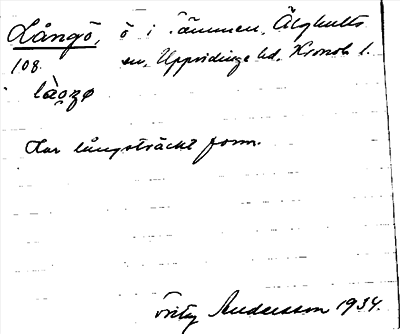 Långö, ö i Tämmen, Älghults
108. sn, Uppvidinge hd, Kronob. l.
Har långsträckt form.
Fritz Andersson 1934.